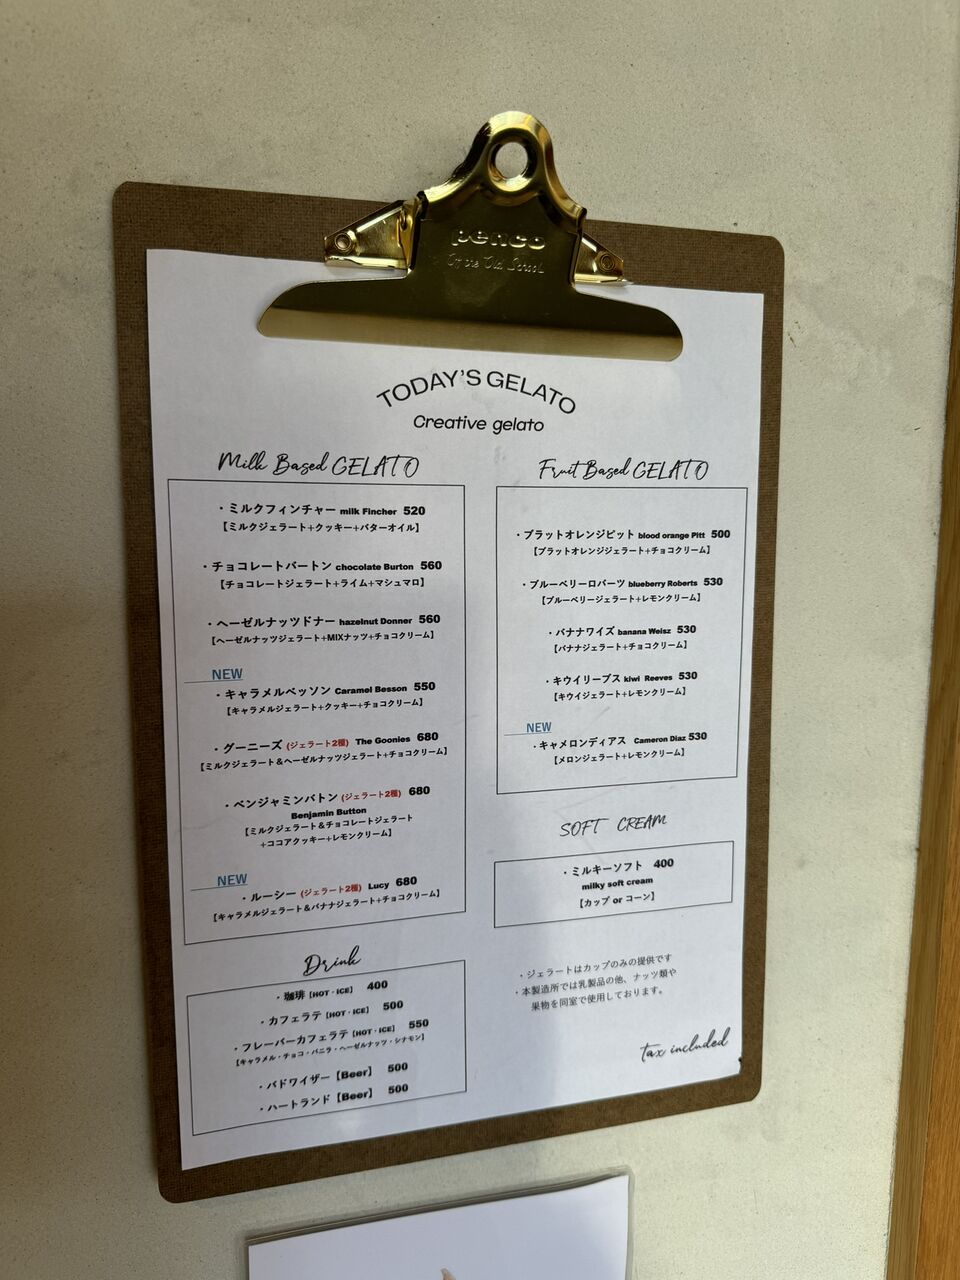 penco
TODAY'S GELATO
Creative gelato
Milk Based GELATO
・ミルクフィンチャー milk Fincher 520
【ミルクジェラート+クッキー+バターオイル】
・チョコレートバートン chocolate Burton 560
【チョコレートジェラート+ライム+マシュマロ】
・ヘーゼルナッツドナー hazelnut Donner 560
【ヘーゼルナッツジェラート+MIXナッツ+チョコクリーム】
NEW
・キャラメルベッソン Caramel Besson 550
【キャラメルジェラート+クッキー+チョコクリーム】
・グーニーズ (ジェラート2種) The Goonies 680
【ミルクジェラート&ヘーゼルナッツジェラート+チョコクリーム】
・ベンジャミンバトン (ジェラート2種) 680
Benjamin Button
【ミルクジェラート&チョコレートジェラート
+ココアクッキー+レモンクリーム】
NEW
・ルーシー (ジェラート2種) Lucy 680
【キャラメルジェラート&バナナジェラート+チョコクリーム】
Drink
・珈琲【HOT・ICE】 400
・カフェラテ【HOT・ICE】 500
・フレーバーカフェラテ【HOT・ICE】 550
【キャラメル・チョコ・バニラ・ヘーゼルナッツ・シナモン】
・バドワイザー【Beer】 500
・ハートランド【Beer】 500
Fruit Based GELATO
・ブラットオレンジピット blood orange Pitt 500
【ブラットオレンジジェラート+チョコクリーム】
・ブルーベリーロバーツ blueberry Roberts 530
【ブルーベリージェラート+レモンクリーム】
・バナナワイズ banana Weisz 530
【バナナジェラート+チョコクリーム】
・キウイリーブス kiwi Reeves 530
【キウイジェラート+レモンクリーム】
NEW
・キャメロンディアス Cameron Diaz 530
【メロンジェラート+レモンクリーム】
SOFT CREAM
・ミルキーソフト 400
milky soft cream
【カップ or コーン】
・ジェラートはカップのみの提供です
・本製造所では乳製品の他、ナッツ類や
果物を同室で使用しております。
tax included